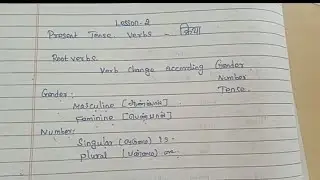 Lesson-2
Present Tense Verbs - क्रिया
Root verbs.
Verb change according Gender
Number
Tense.
Gender:
Masculine [ஆண்பால்]
Faminine [பெண்பால்]
Number:
Singular (ஒருமை)
plural (பன்மை)